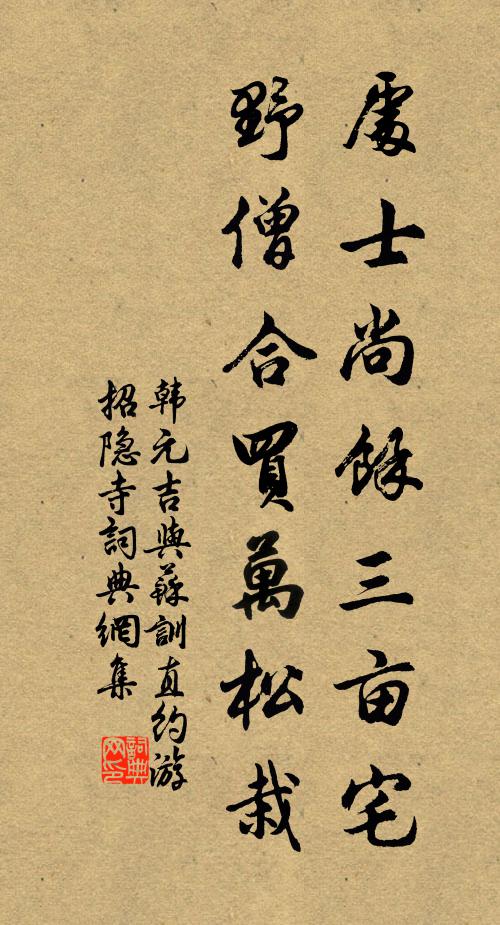 處士尚餘三亩宅
野僧合買萬松栽
韩元吉與蘇訓直约游
招隐寺詞典網集
詞典网印